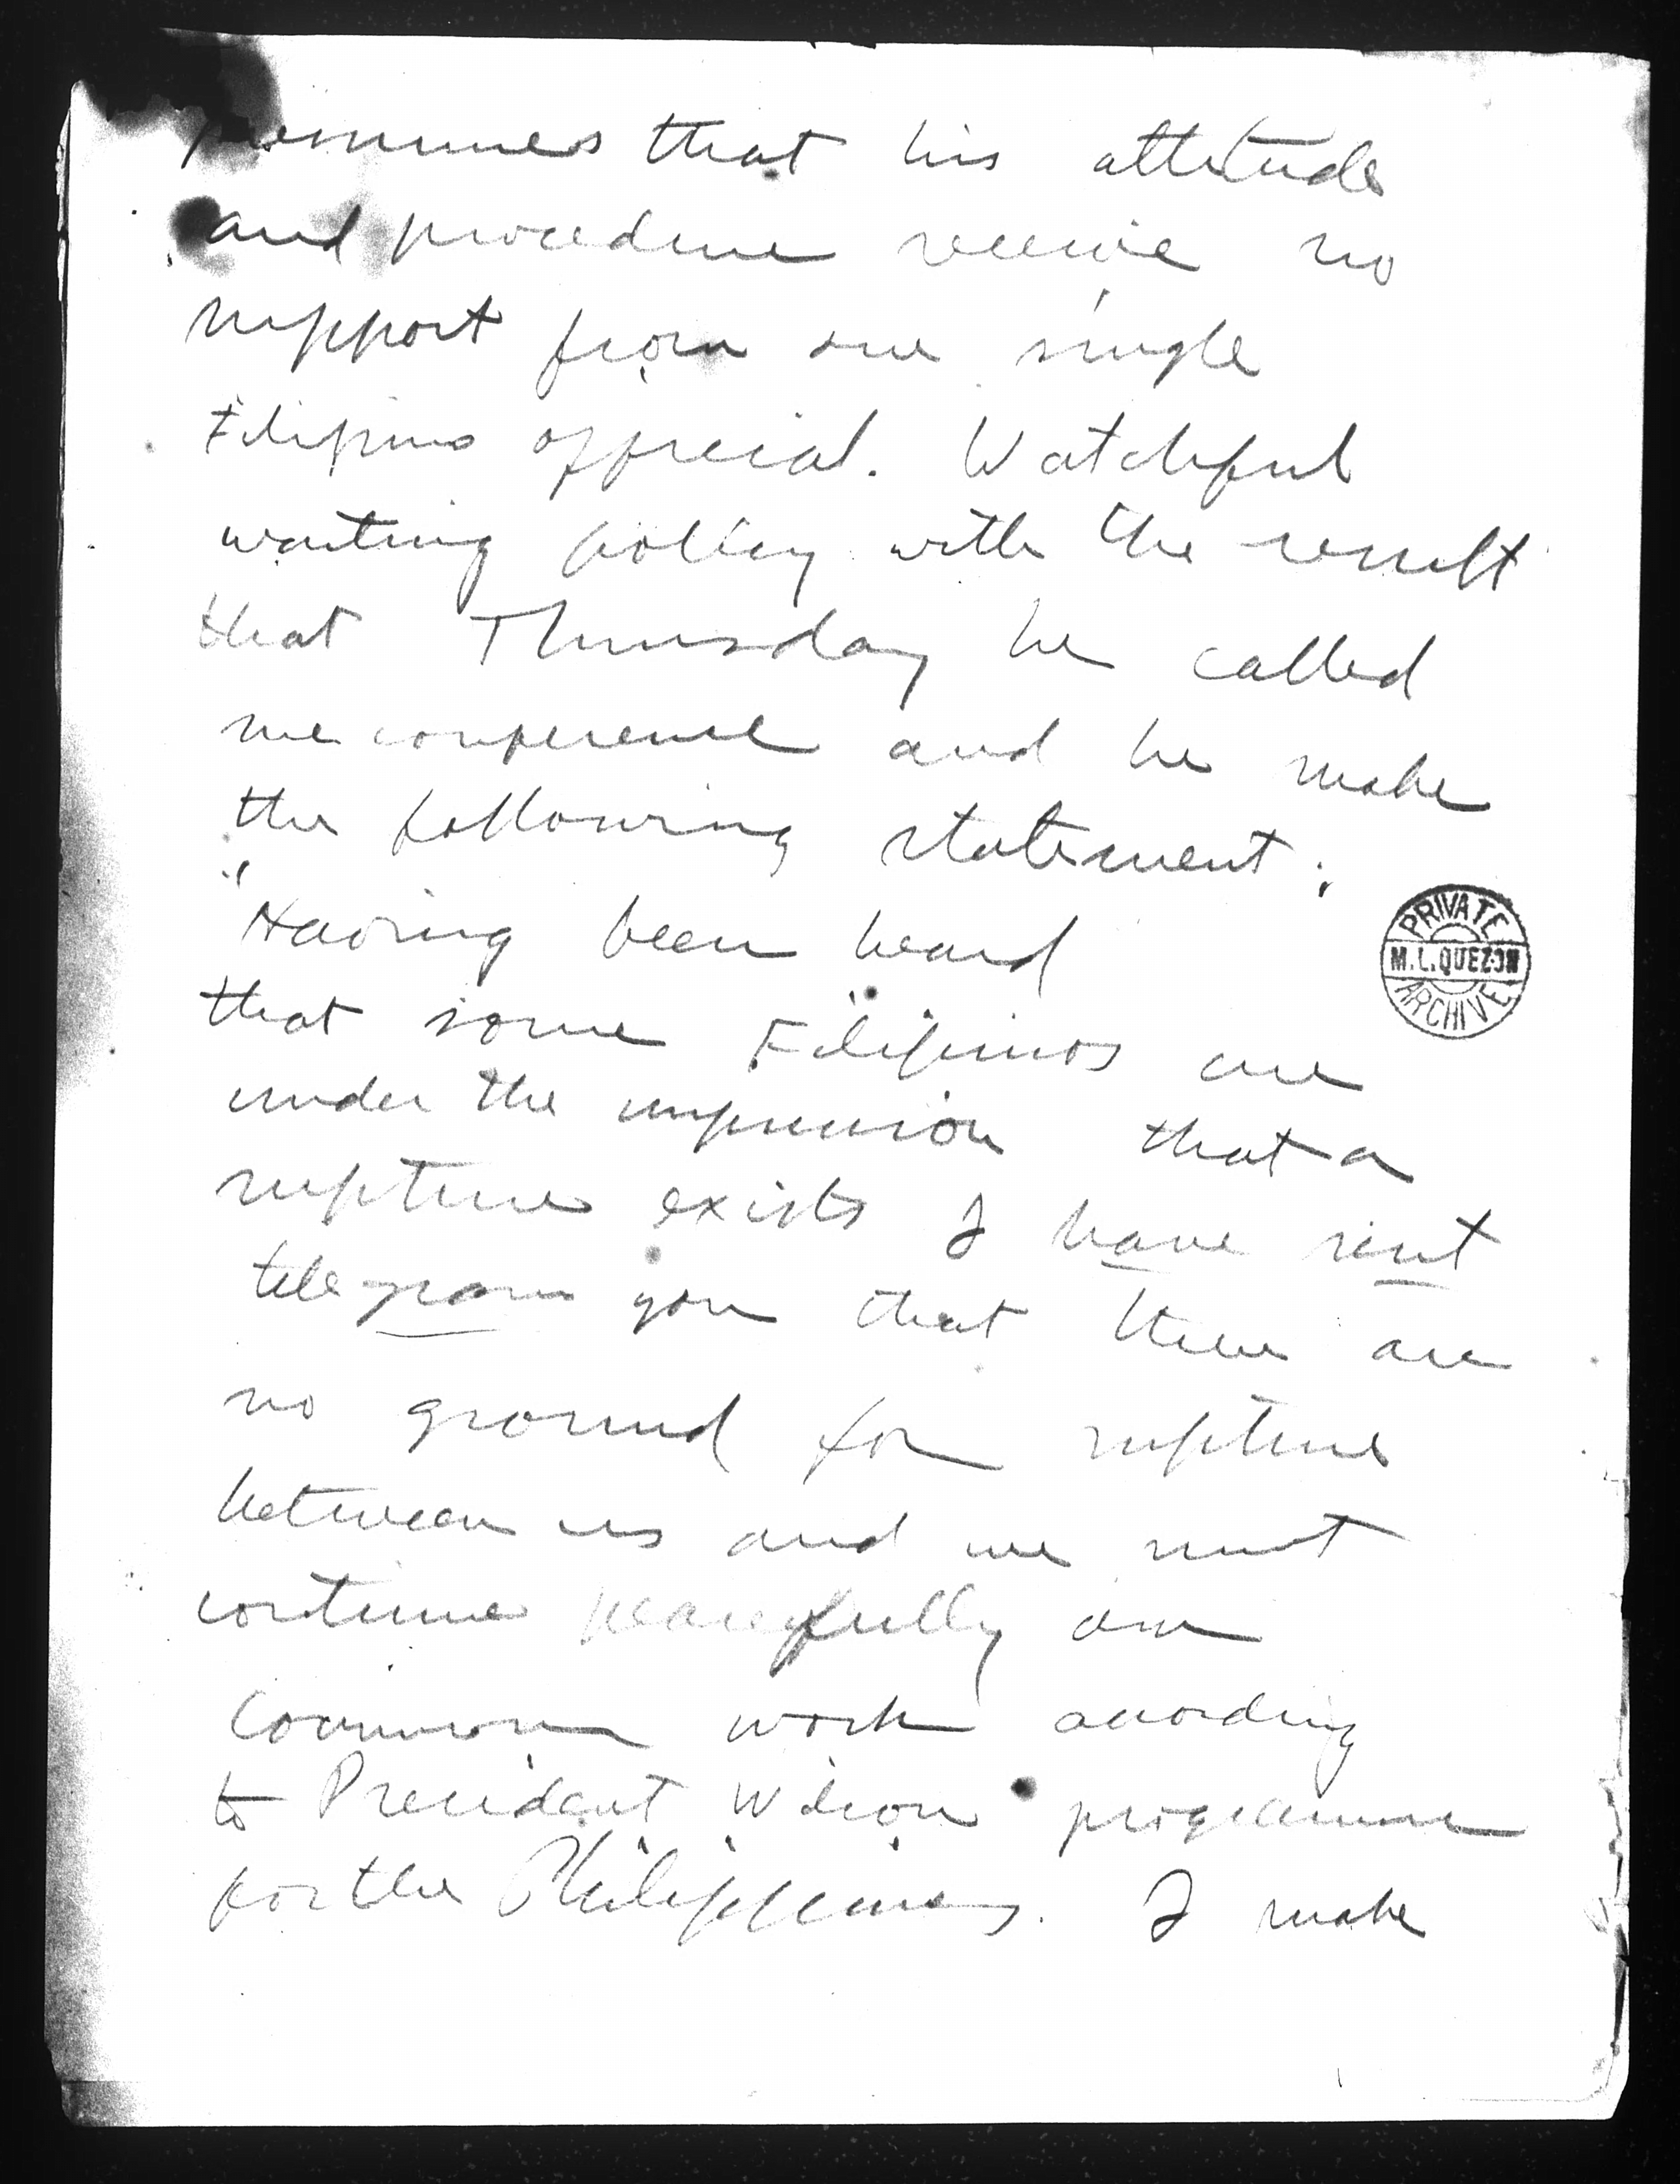 that his attitude
and procedure receive no
support from one single
Filipino official. Watchful
waiting policy with the result
that Thursday he called
me conference and he make
the following statement:
"Having been heard
that some Filipinos are
under the impression that a
rupture exists I have sent
telegram you that there are
no ground for rupture
between us and we must
continue peacefully our
common work according
to President Wilson programme
for the Philippines. I make
PRIVATE
M. L. QUEZON
ARCHIVE